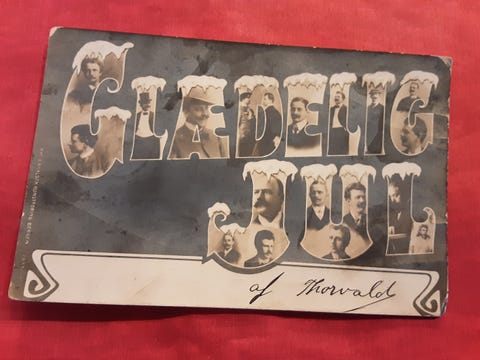 GLÆDELIG
JUL
af Thorvald